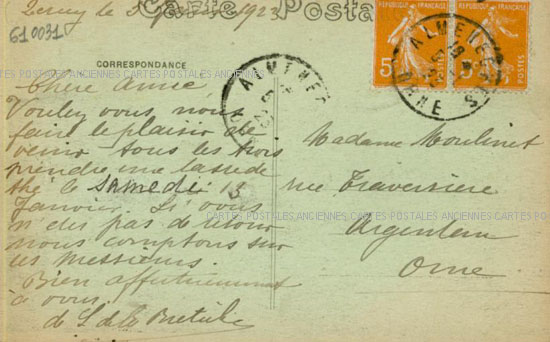 610031
le janvier 1923
Carte Postale
CORRESPONDANCE
Chère Amie,
Voulez vous nous
faire le plaisir de
venir tous les trois
prendre une tasse de
thé le samedi 13
Janvier. Si vous
n'êtes pas de retour
nous comptons sur
les messieurs.
Bien affectueusement
à vous.
de
Madame Moulinet
rue Traversière
Argentan
Orne
REPUBLIQUE FRANÇAISE
5
POSTES
REPUBLIQUE FRANÇAISE
5
POSTES
ALMENECHES
ORNE
ALMENECHES
CARTES POSTALES ANCIENNES CARTES POSTALES ANCIENNES CARTES POSTALES ANCIENNES